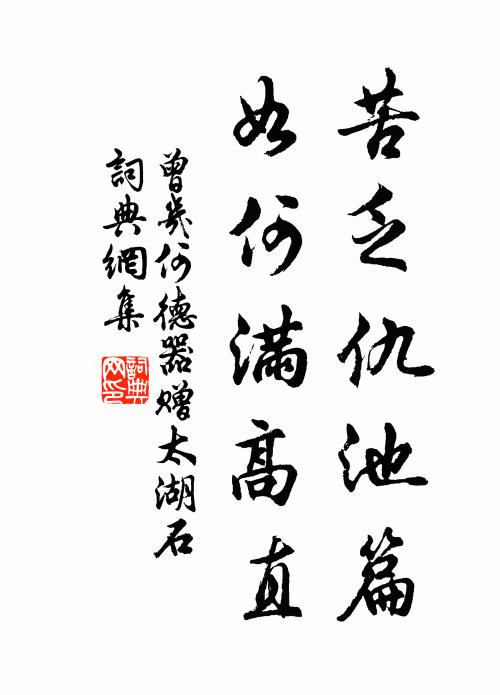 苦乏仇池篇
如何满高直
曾幾何德器赠太湖石
詞典網集
詞典網印